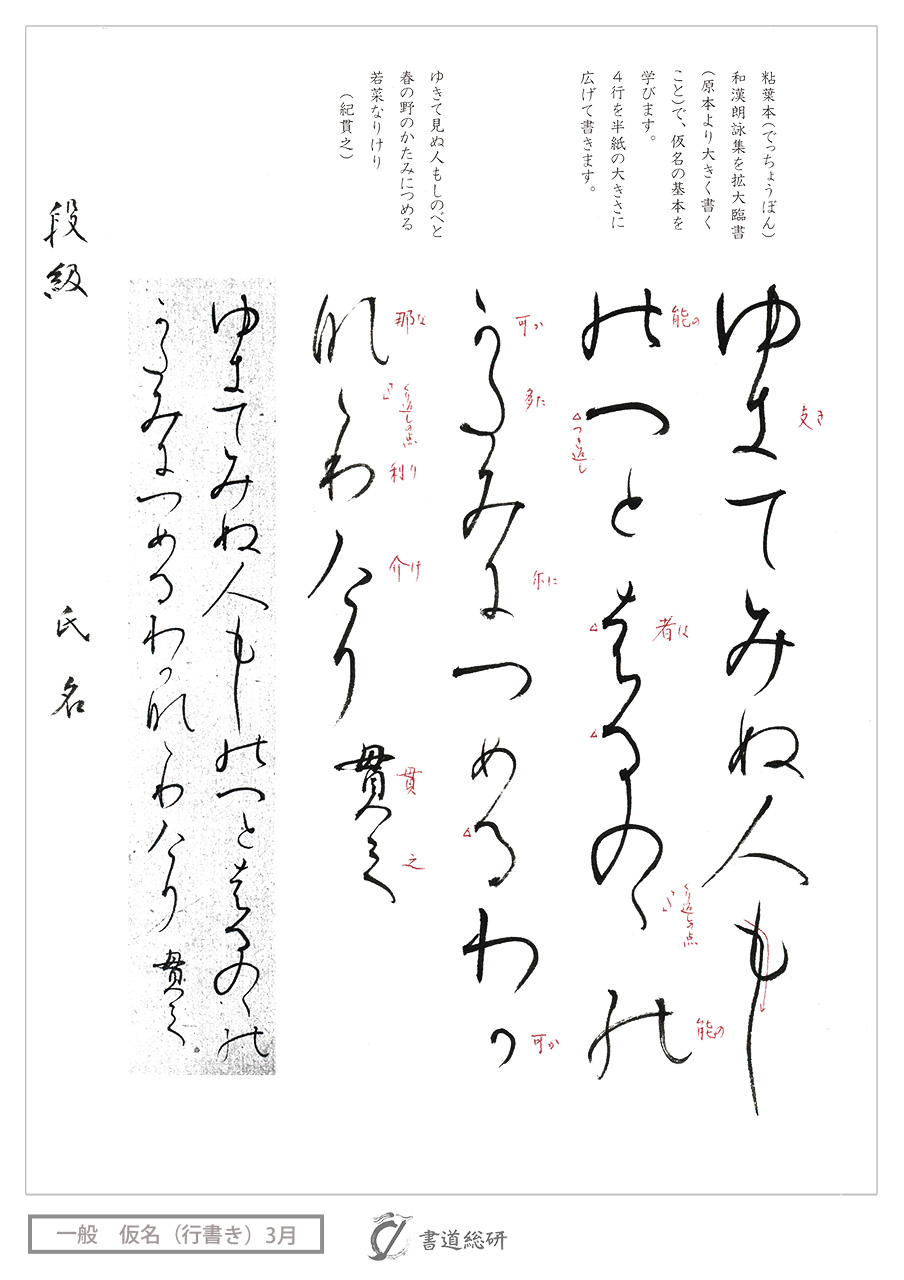 粘葉本(でっちょうぼん)
和漢朗詠集を拡大臨書
(原本より大きく書く
こと)で、仮名の基本を
学びます。
4行を半紙の大きさに
広げて書きます。
ゆきて見ぬ人もしのべと
春の野のかたみにつめる
若菜なりけり
(紀貫之)
ゆ支てみぬ人もし
支き
能へと者るのゝ能
能の
つき返し
者は
くり返しの点
能の
可多み尓つめるわ可
可か
多た
尓に
可か
那ゝ利介り 貫之
那な
くり返しの点
利り
介け
貫
之
ゆ支てみぬ人もし能へと者るのゝ能
可多み尓つめるわ可那ゝ利介り 貫之
段級 氏名
一般 仮名(行書き)3月
書道総研